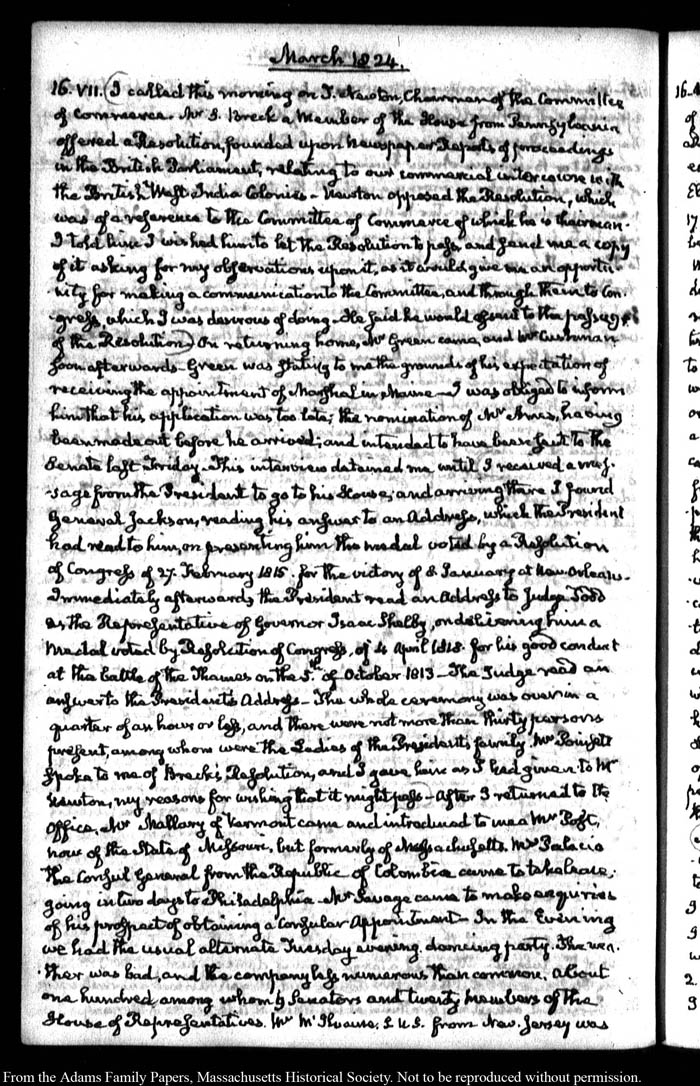 March 1824.
16. VII. (I called this morning on T. Newton, Chairman of the Committee
of Commerce. Mr S. Breck a Member of the House from Pennsylvania
offered a Resolution, founded upon Newspaper Reports of proceedings
in the British Parliament, relating to our commercial intercourse with
the British West India Colonies - Newton opposed the Resolution, which
was of a reference to the Committee of Commerce of which he is chairman.
I told him I wished him to let the Resolution to pass, and send me a copy
of it asking for my observations upon it, as it would give me an opportu-
nity for making a communication to the Committee, and through them to Con-
-gress, which I was desirous of doing. He said he would assent to the passage
of the Resolution) On returning home, Mr Green came, and Mr Cushman
soon afterwards - Green was stating to me the grounds of his expectation of
receiving the appointment of Marshal in Maine - I was obliged to inform
him that his application was too late; the nomination of Mr having
been made out before he arrived; and intended to have been sent to the
Senate last Friday. This interview detained me until I received a mes-
-sage from the President to go to his House; and arriving there I found
General Jackson, reading his answer to an Address, which the President
had read to him, on presenting him the medal voted by a Resolution
of Congress of 27. February 1815. for the victory of 8 January at New-Orleans.
Immediately afterwards the President read an Address to Judge Todd
as the Representative of Governor Isaac Shelby, on delivering him a
Medal voted by Resolution of Congress, of 4 April 1818. for his good conduct
at the battle of the Thames on the 5th of October 1813 - The Judge read an
answer to the President's Address - The whole ceremony was over in a
quarter of an hour or less, and there were not more than thirty persons
present, among whom were the Ladies of the President's family. Mr Poinsett
spoke to me of Breck's Resolution, and I gave him as I had given to Mr
Newton, my reasons for wishing that it might pass - After I returned to the
Office, Mr Mallary of Vermont came and introduced to me a Mr Post,
now of the State of Missouri, but formerly of Massachusetts. Mr Palacio
the Consul General from the Republic of Colombia came to take leave;
going in two days to Philadelphia. Mr Savage came to make enquiries
of his prospect of obtaining a Consular Appointment - In the Evening
we had the usual alternate Tuesday evening dancing party. The wea-
-ther was bad, and the company less numerous than common. about
one hundred among whom 9 Senators and twenty members of the
House of Representatives. Mr McIlvaine, S.U.S. from New-Jersey was
From the Adams Family Papers, Massachusetts Historical Society. Not to be reproduced without permission.